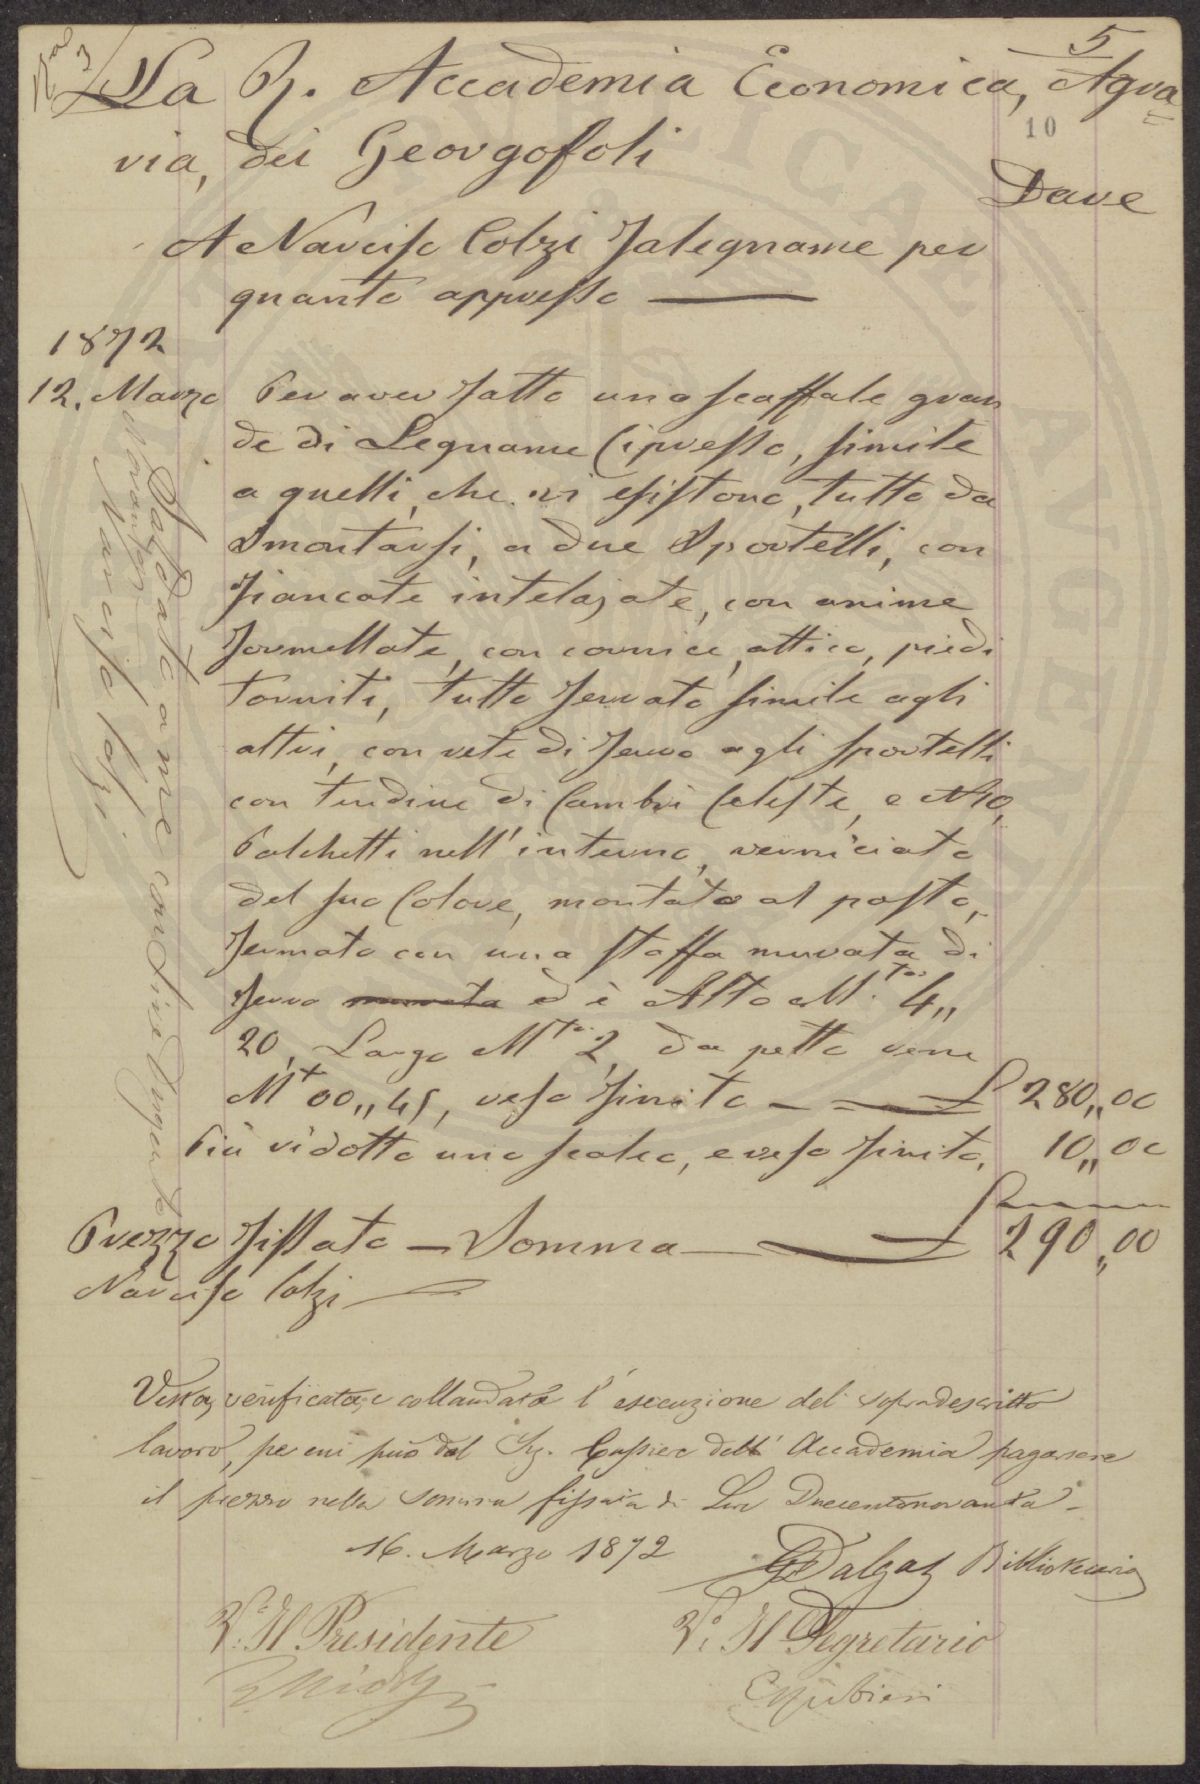 5
10
La R. Accademia Economica, Agra
ria, dei Georgofoli
Dare
A Narciso Colzi Falegname per
quanto appresso
1872
12. Marzo Per aver fatto uno scaffale gran
de di Legname Cipresso, simile
a quelli, che vi esistono, tutto da
Smontarsi, a due Sportelli, con
fiancate intelajate, con anime
formellate, con cornice, attico, piedi
torniti, tutto ferrato simile agli
altri, con rete di ferro agli sportelli
con tendine di Cambri Celeste, e No 10,
Palchetti nell'interno, verniciato
del suo Colore, montato al posto,
fermato con una staffa murata di
ferro murata ed è Alto M.tri 4,,
20, Largo M.tri 2, da petto vene
Mt 00,,45, reso finito £ 280,,00
Più ridotto una scaleo, e reso finito, 10,,00
Prezzo fissato - Somma £ 290,,00
Narciso Colzi
Saldato a me contine Dugento
novanta
Narciso Colzi
Vista, verificata, e collaudata l'esecuzione del sopradescritto
lavoro, per cui può dal Sig. Cassiere dell'Accademia pagarsene
il prezzo nella somma fissata di Lire Duecentonovanta -
16. Marzo 1872
Dalgas Bibliotecario
V.o Il Presidente
V.o Il Segretario
Ridolfi